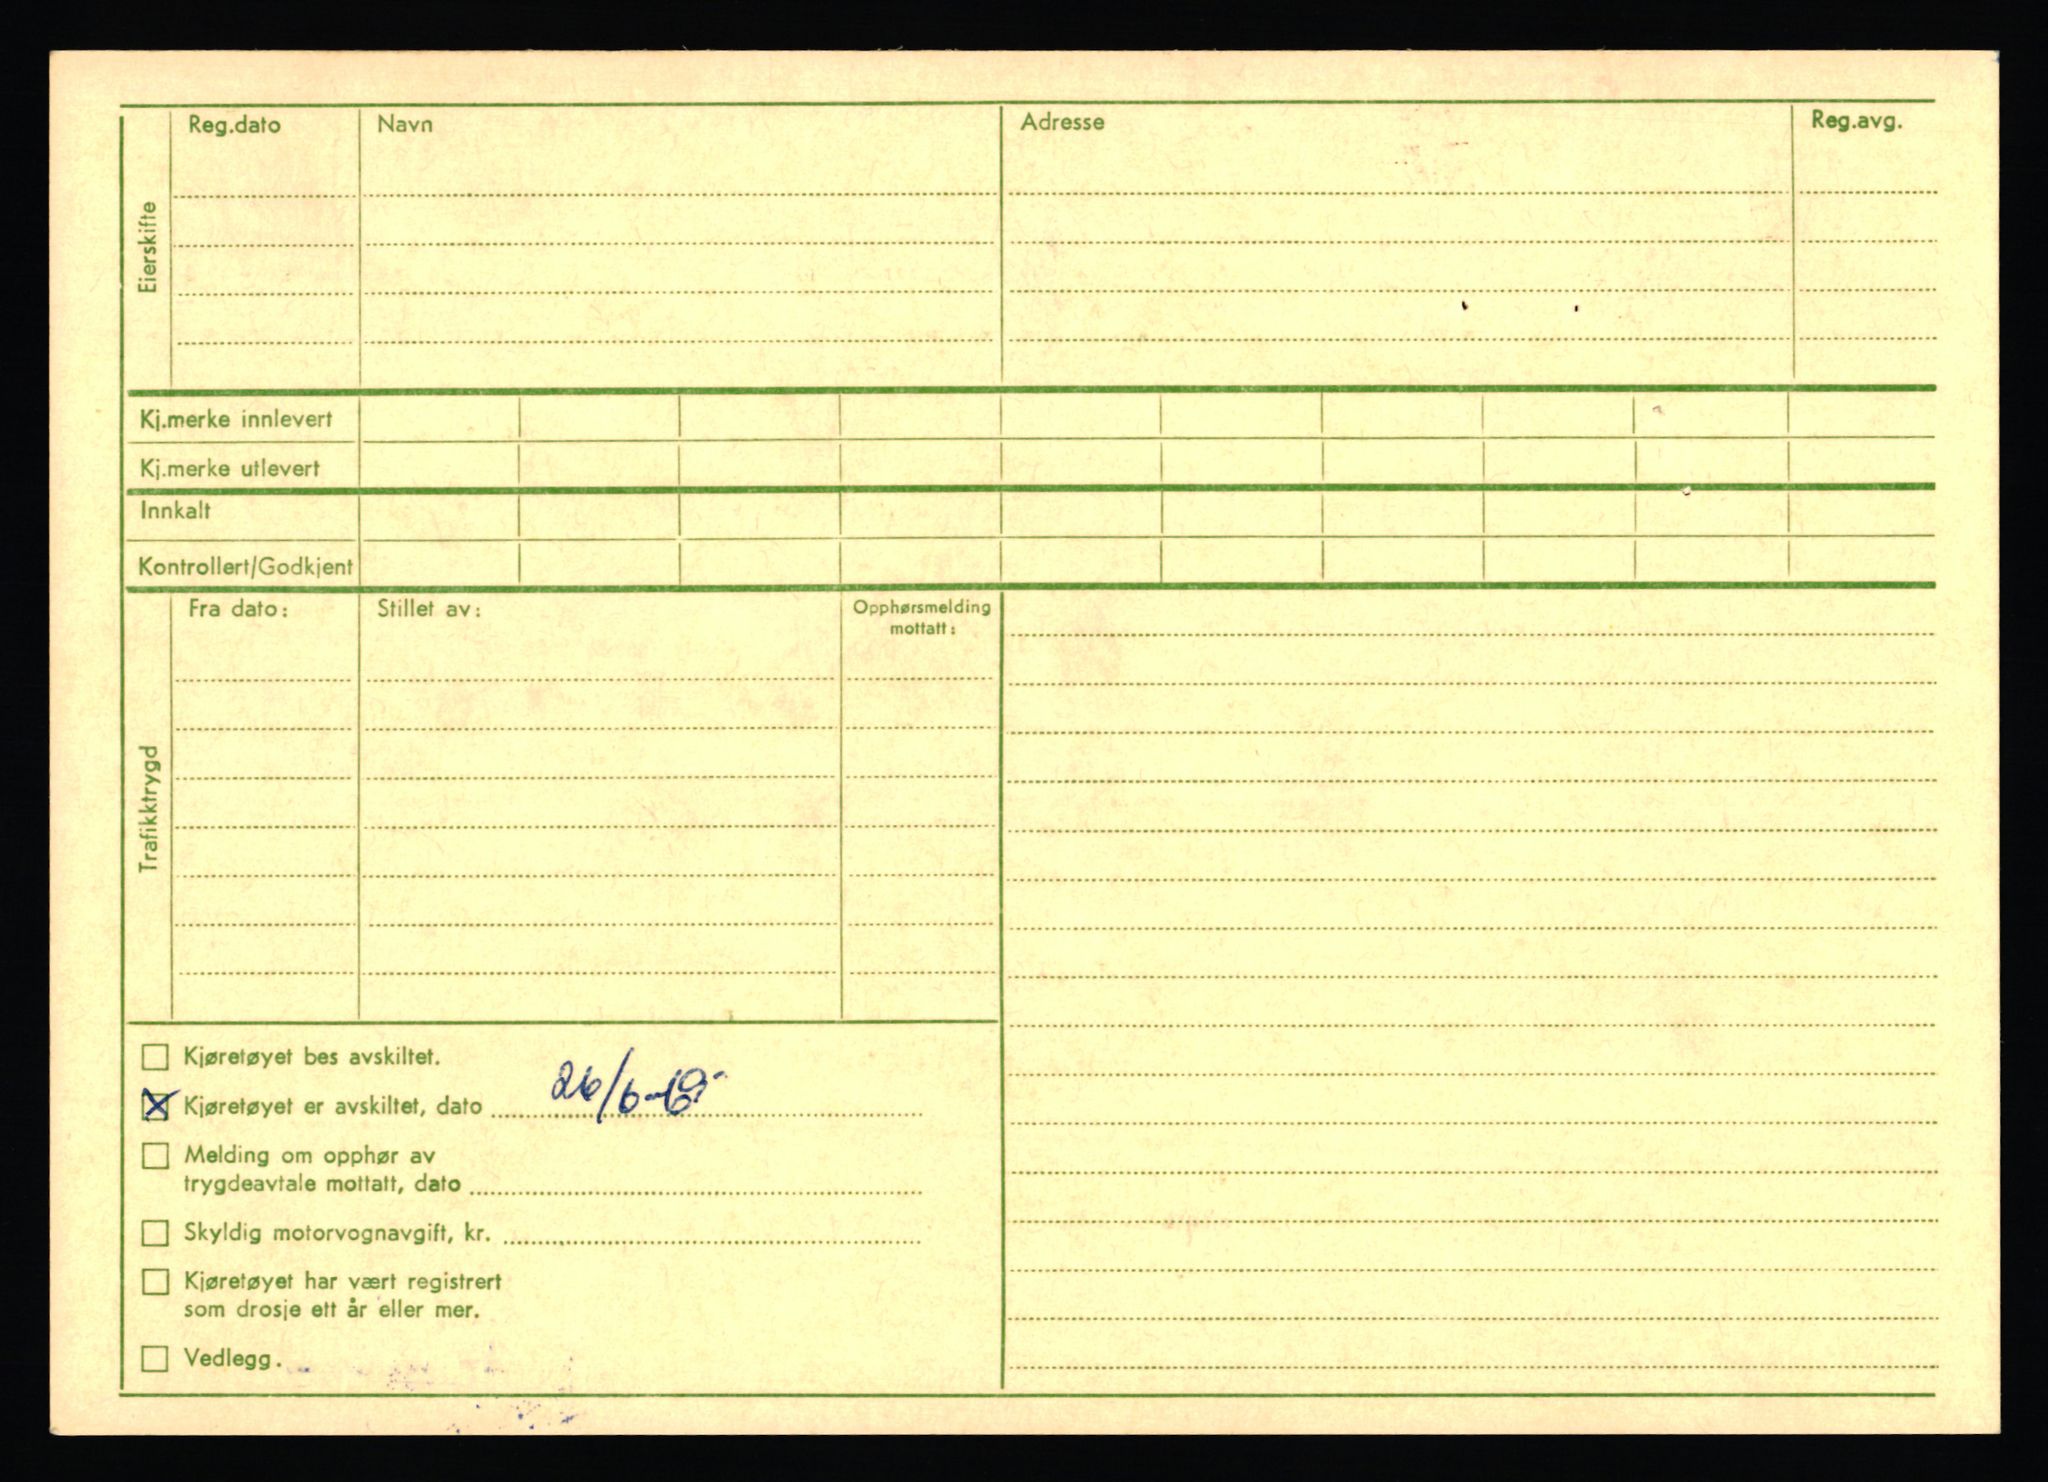 Reg.dato Navn Adresse Reg.avg.
Eierskifte
Kj.merke innlevert
Kj.merke utlevert
Innkalt
Kontrollert/Godkjent
Fra dato: Stillet av: Opphørsmelding
mottatt:
Trafikktrygd
Kjøretøyet bes avskiltet.
Kjøretøyet er avskiltet, dato
Melding om opphør av
trygdeavtale mottatt, dato
Skyldig motorvognavgift, kr.
Kjøretøyet har vært registrert
som drosje ett år eller mer.
Vedlegg.